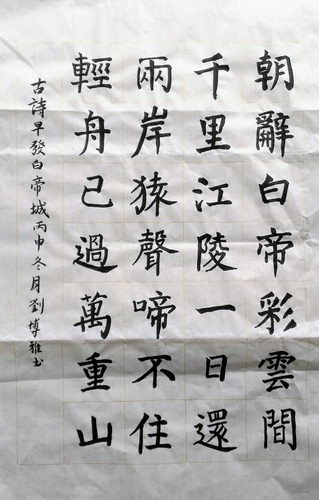 朝辭白帝彩雲間
千里江陵一日還
兩岸猿聲啼不住
輕舟已過萬重山
古詩早發白帝城丙申冬月劉博雅書